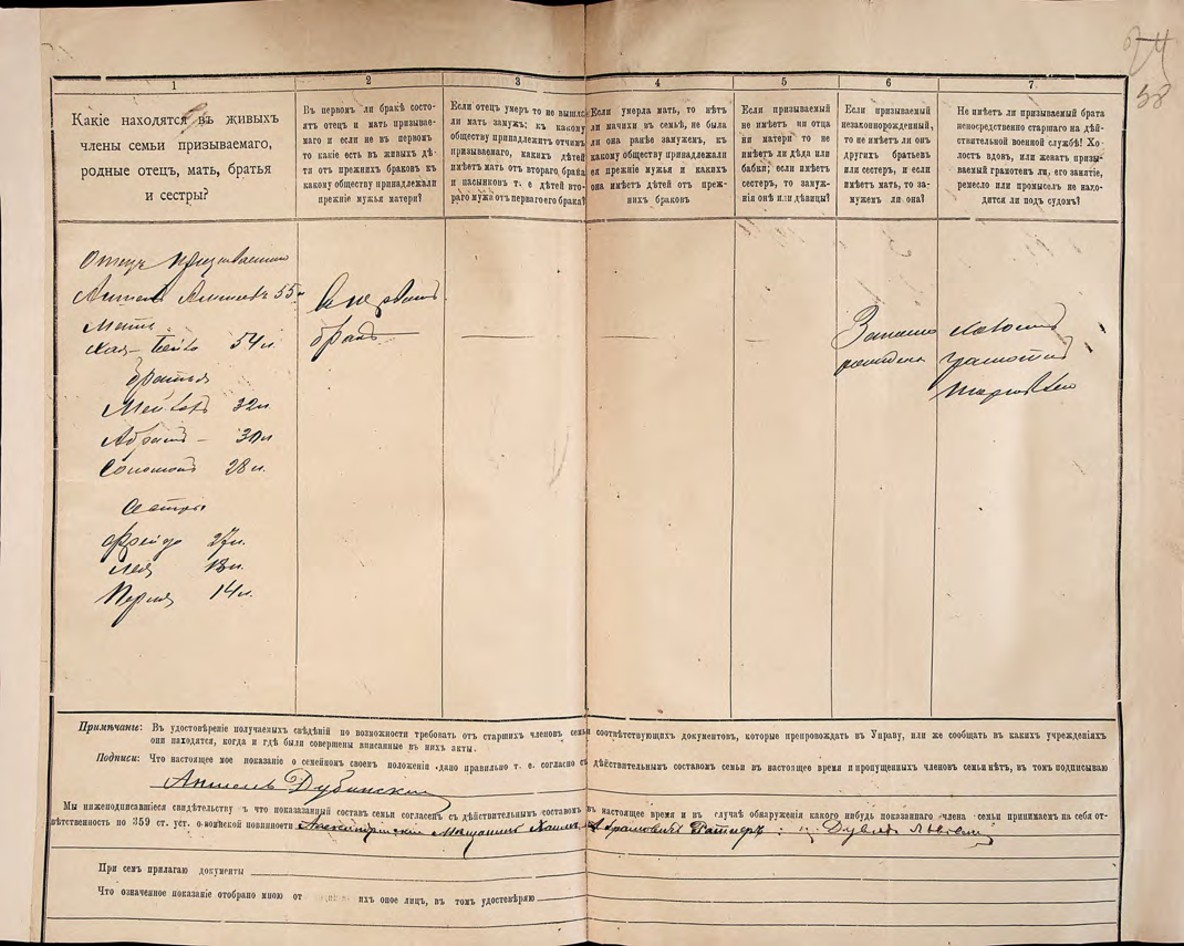 74
58
1
2
3
4
5
6
7
Какіе находятся въ живыхъ
члены семьи призываемаго,
родные отецъ, мать, братья
и сестры?
Въ первомъ ли бракѣ состо-
ятъ отецъ и мать призывае-
маго и если не въ первомъ
то какіе есть въ живыхъ дѣ-
ти отъ прежнихъ браковъ къ
какому обществу принадлежали
прежніе мужья матери?
Если отецъ умеръ то не вышла
ли мать замужъ; къ какому
обществу принадлежитъ отчимъ
призываемаго, какихъ дѣтей
имѣетъ мать отъ втораго брака
и пасынковъ т. е дѣтей вто-
раго мужа отъ перваго его брака?
Если умерла мать, то нѣтъ
ли мачихи въ семьѣ, не была
ли она ранѣе замужемъ, къ
какому обществу принадлежали
ея прежніе мужья и какихъ
она имѣетъ дѣтей отъ преж-
нихъ браковъ
Если призываемый
не имѣетъ ни отца
ни матери то не
имѣетъ ли дѣда или
бабки; если имѣетъ
сестеръ, то замуж-
нія онѣ или дѣвицы?
Если призываемый
незаконнорожденный,
то не имѣетъ ли онъ
другихъ братьевъ
или сестеръ, и если
имѣетъ мать, то за-
мужемъ ли она?
Не имѣетъ ли призываемый брата
непосредственно старшаго на дѣй-
ствительной военной службѣ? Хо-
лостъ вдовъ, или женатъ призы-
ваемый грамотенъ ли, его занятіе,
ремесло или промыселъ не нахо-
дится ли подъ судомъ?
Отецъ Призываемаго
55
Мать
Хая-Бейла 54 л.
братья
32 л.
Абрамъ - 30 л
Соломонъ 28 л.
Сестры
Фрейда л.
Лея 18 л.
Перля 14 л.
Въ первомъ
бракѣ
Законно
рожденъ
Холостъ
грамотенъ
Примѣчаніе: Въ удостовѣреніе получаемыхъ свѣдѣній по возможности требовать отъ старшихъ членовъ семьи соотвѣтствующихъ документовъ, которые препровождать въ Управу, или же сообщать въ какихъ учрежденіяхъ
они находятся, когда и гдѣ были совершены вписанные въ нихъ акты.
Подписи: Что настоящее мое показаніе о семейномъ своемъ положеніи дано правильно т. е. согласно съ дѣйствительнымъ составомъ семьи въ настоящее время и пропущенныхъ членовъ семьи нѣтъ, въ томъ подписываю
Дубинскій
Мы нижеподписавшіеся свидѣтельству ъ что показанный составъ семьи согласенъ съ дѣйствительнымъ составомъ въ настоящее время и въ случаѣ обнаруженія какого нибудь показаннаго члена семьи принимаемъ на себя от-
вѣтственность по 359 ст. уст. о воинской повинности Мѣщанинъ Хаимъ Абрамовичъ Ратнеръ
При семъ прилагаю документы
Что означенное показаніе отобрано мною от ихъ оное лицъ, въ томъ удостовѣряю